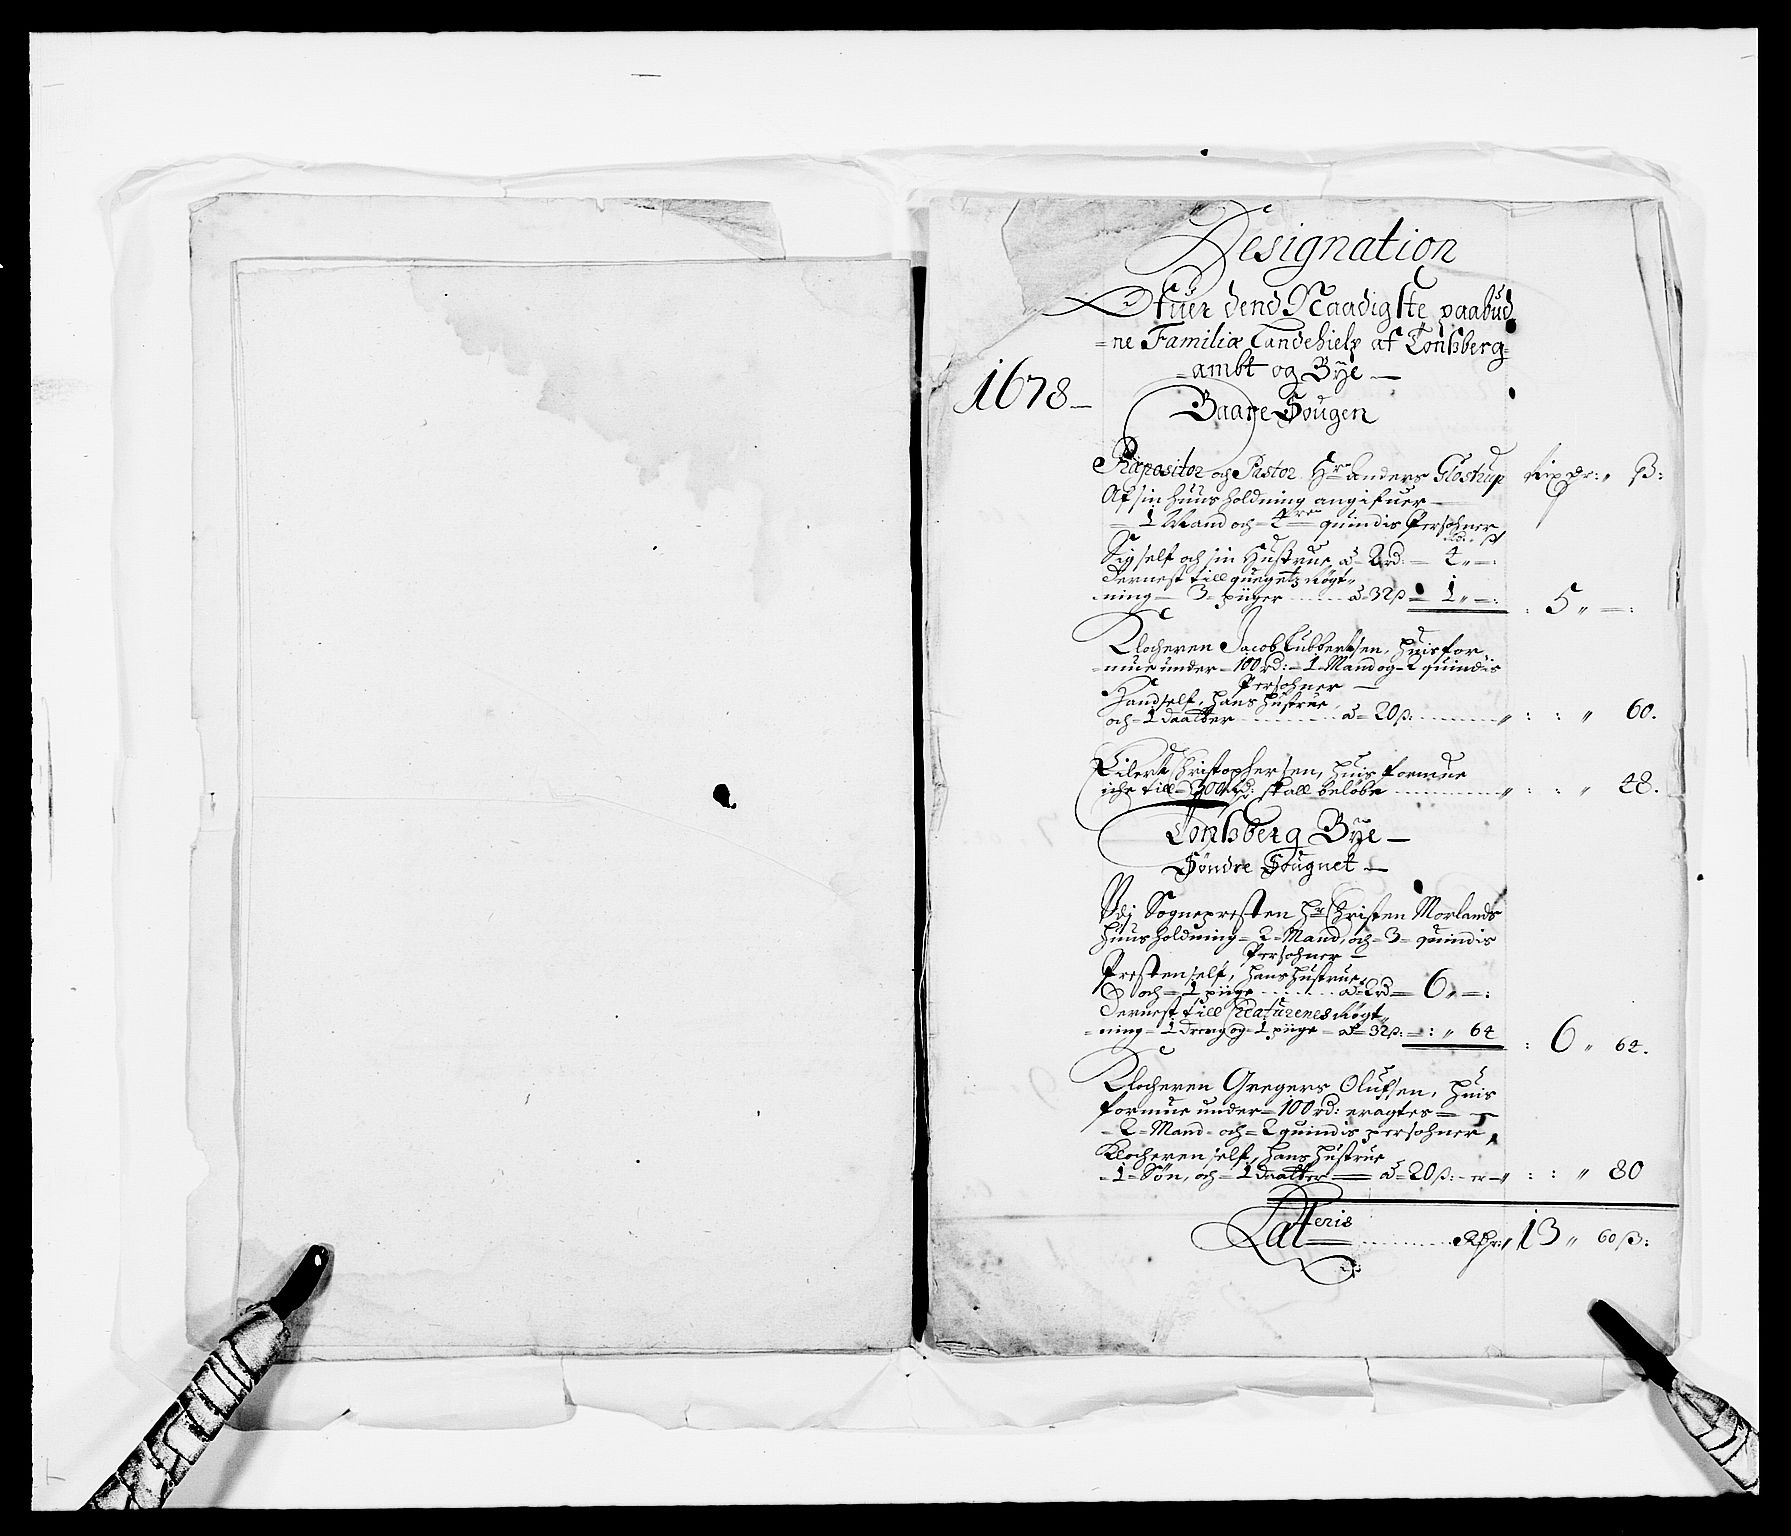 Designation
Ofuer dend Naadigste paabud
=ne Familiæ Landehielp af Tonsberg=
=ambt og Bye —
1678 —
Baare Sougen
Præpositor och Pastor Hr Anders Glostrup Rix Dr: ß:
Af sin huusholdning angifuer
= 1 Mand och = 4re quindis Persohner
Rd: ß
Sig self och sin Hustrue, a = 2 rd: = 4 „ — :
Dernest till quegetz Røgt-
ning — 3 = piiger ..... a = 32 ß = 1 „ — : : 5 „ — :
Klocheren Jacob Lubbertsen, huis for
=mue under = 100 rd: = 1 Mand og = 2 quindis
Persohner —
Hand self, hans hustrue
och = 1 daatter ........ a = 20 ß: ........ „ : : „ 60.
Eilert Christophersen, huis formue
iche till = 300 rd: skall beløbe ........ „ : : „ 48.
Tonsberg Bye —
Søndre Sougnet —
Udj Sognepresten Hr Christen Morlands
huusholdning = 2 = Mand, och = 3 = quindis
Persohner —
Presten self, hans hustrue
och = 1 piige ........ a = 2 rd = 6 „ — :
Dernest till Creaturenes Røgt-
=ning = 1 dreng og = 1 piige = a = 32 ß: = : „ 64 : 6 „ 64.
Klocheren Gregers Olufsen, huis
formue under = 100 rd: eragtes =
= 2 = Mand = och = 2 quindis persohner,
Klocheren self, hans hustrue
= 1 = Søn, och = 1 daatter — a = 20 ß: - er — „ : : „ 80
Lateris ........ Rdr: 13 „ 60 ß: